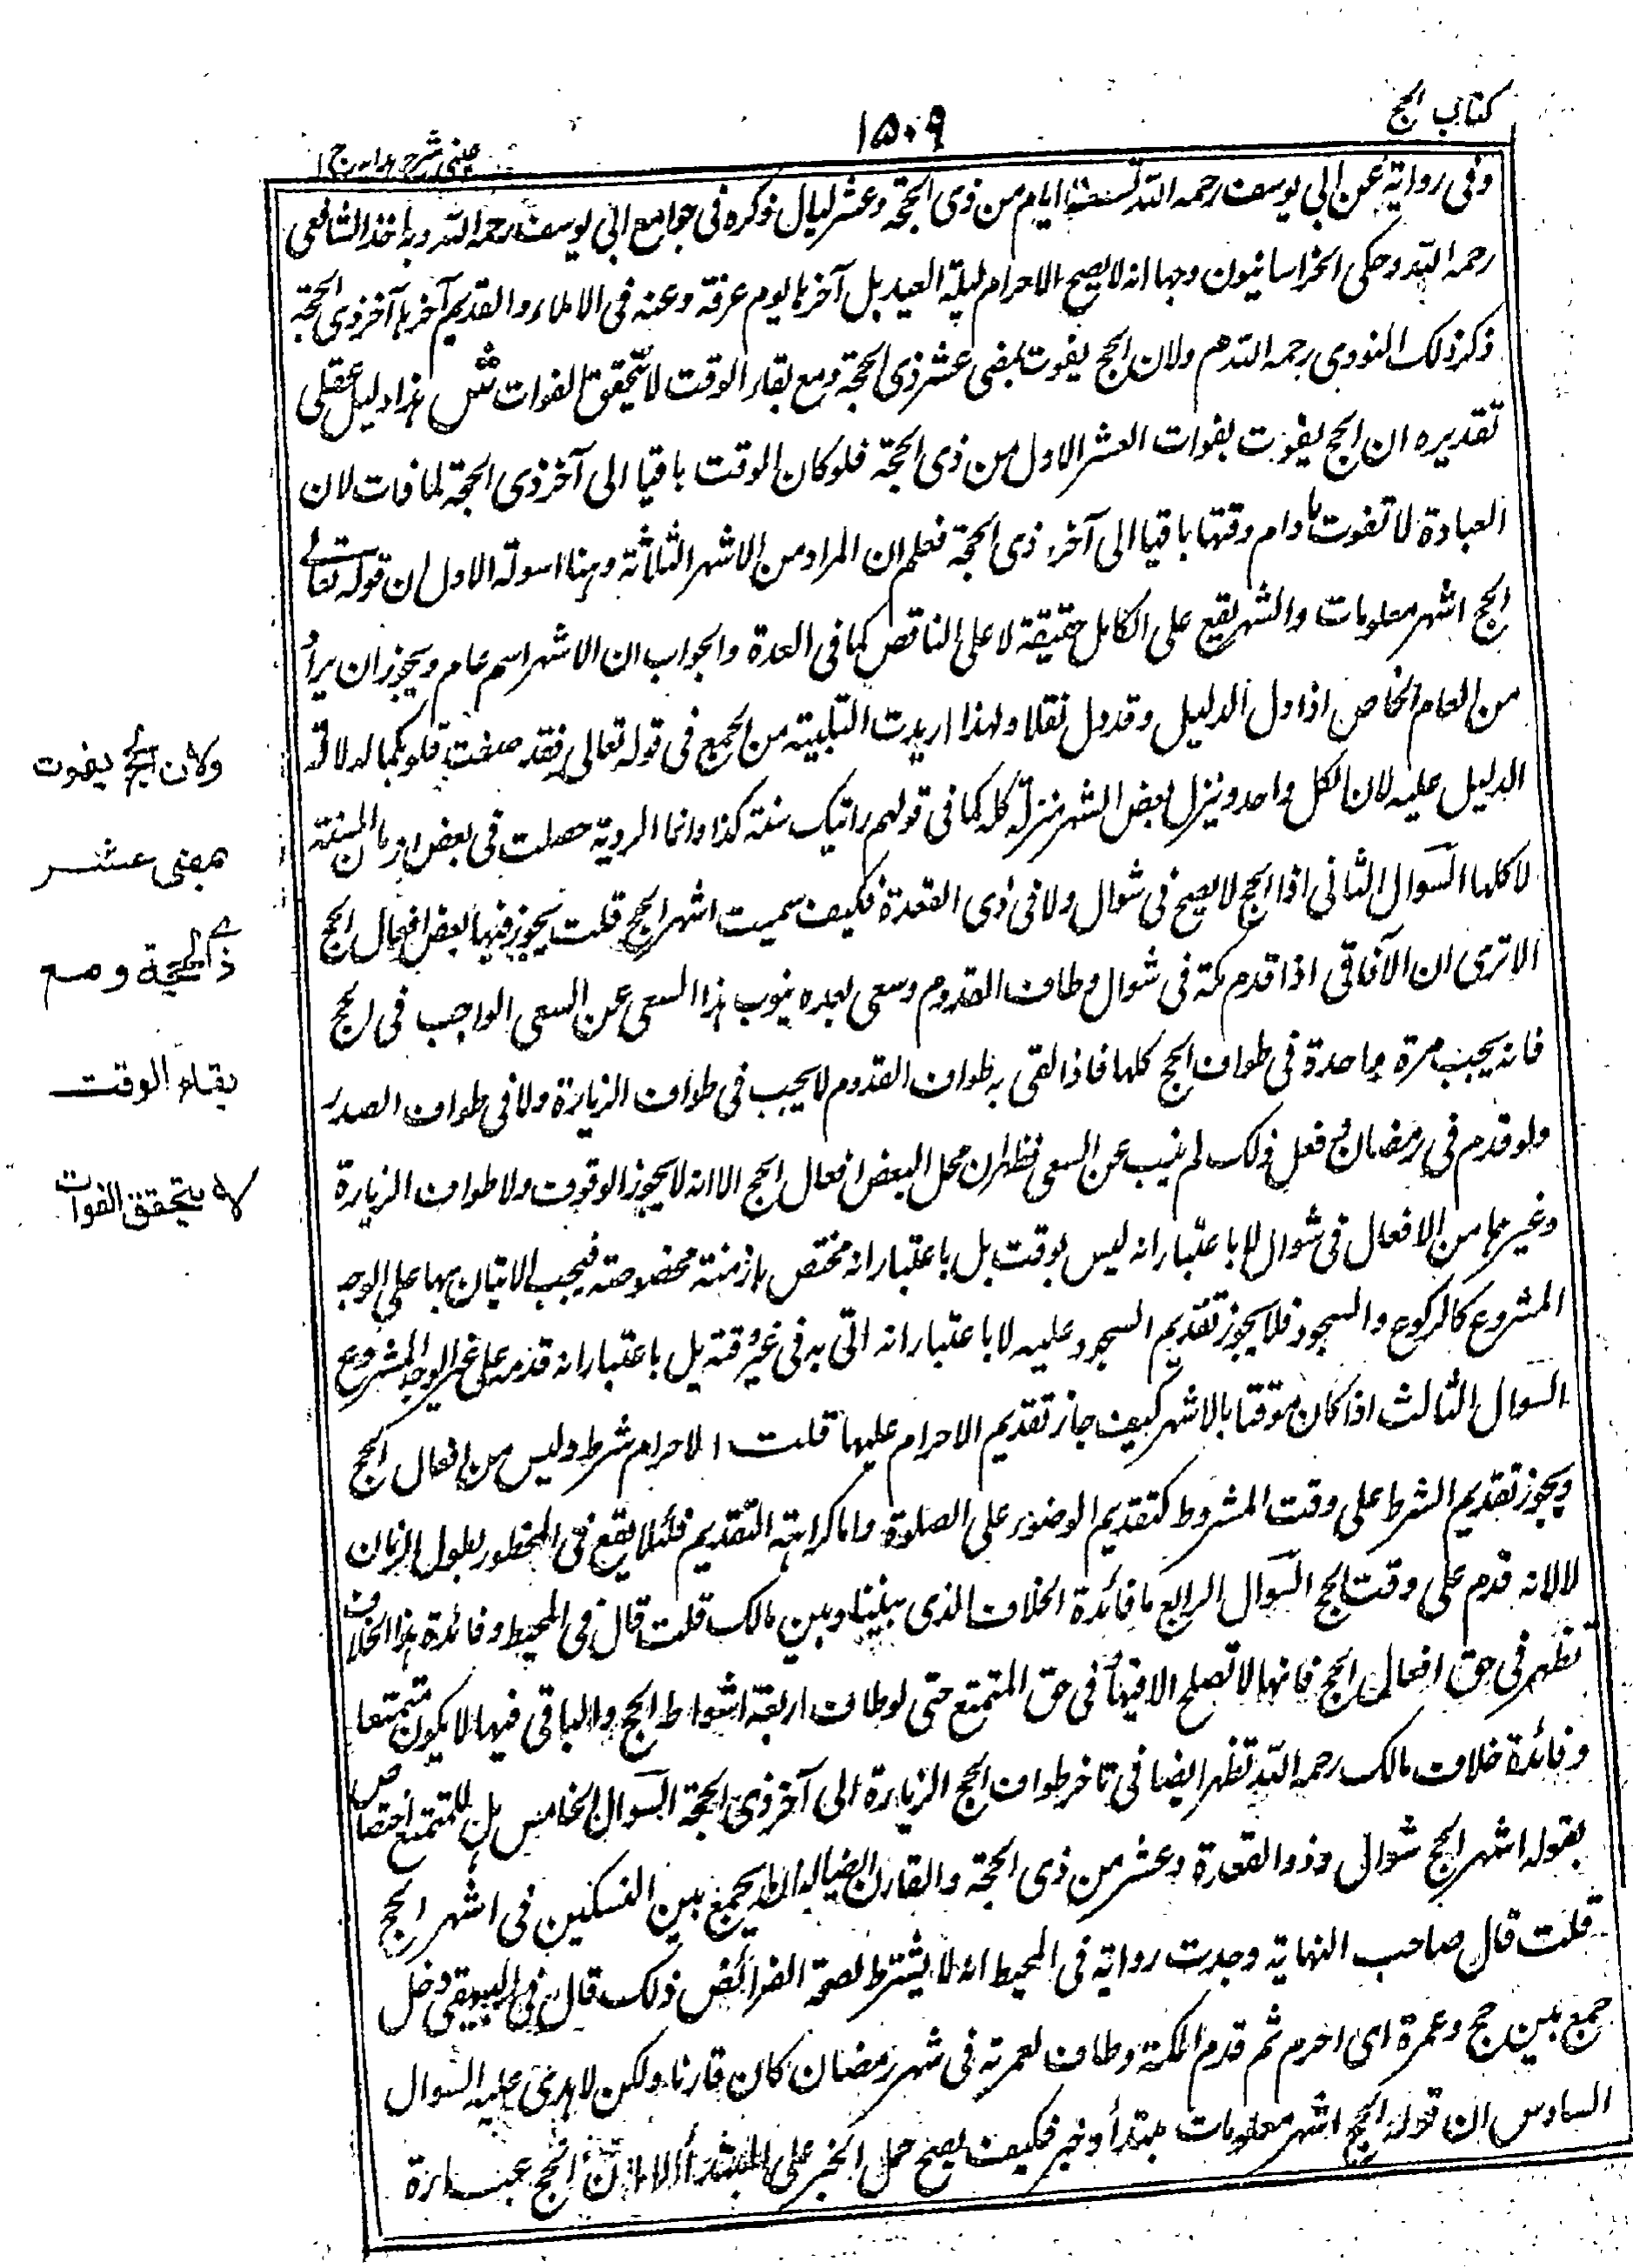 كتاب الحج
١٥٠٩
عینی شرح هدایہ ج ا
وفى رواية عن ابى يوسف رحمه الله تسعة ايام من ذى الحجة وعشر ليال ذكره فى جوامع ابى يوسف رحمه الله وبه اخذ الشافعى
رحمه الله وحكى الخراسانيون وجها انه لا يصح الاحرام ليلة العيد بل آخرها يوم عرفة وعنه فى الاملاء والقديم آخرها آخر ذى الحجة
ذكر ذلك النووى رحمه الله م ولان الحج يفوت بمضى عشر ذى الحجة ومع بقاء الوقت لا يتحقق الفوات ش هذا دليل عقلى
تقديره ان الحج يفوت بفوات العشر الاول من ذى الحجة فلو كان الوقت باقيا الى آخر ذى الحجة لما فات لان
العبادة لا تفوت ما دام وقتها باقيا الى آخر ذى الحجة فعلم ان المراد من الاشهر الثلاثة وهنا اسولة الاول ان قوله تعالى
الحج اشهر معلومات والشهر يقع على الكامل حقيقة لا على الناقص كما فى العدة والجواب ان الاشهر اسم عام ويجوز ان يراد
من العام الخاص اذا دل الدليل وقد دل نقلا ولهذا اريدت التثنية من الجمع فى قوله تعالى فقد صغت قلوبكما لدلالة
الدليل عليه لان لكل واحد وينزل بعض الشهر منزلة كله كما فى قولهم رايتك سنة كذا وانما الروية حصلت فى بعض ازمان السنة
لا كلها السوال الثانى اذا الحج لا يصح فى شوال ولا فى ذى القعدة فكيف سميت اشهر الحج قلت يجوز فيها بعض افعال الحج
الا ترى ان الآفاقى اذا قدم مكة فى شوال وطاف القدوم وسعى بعده ينوب هذا السعى عن السعى الواجب فى الحج
فانه يجب مرة واحدة فى طواف الحج كلها فاذا لقى به طواف القدوم لا يجب فى طواف الزيارة ولا فى طواف الصدر
ولو قدم فى رمضان وفعل ذلك لم ينب عن السعى فظهر ان محل البعض افعال الحج الا انه لا يجوز الوقوف ولا طواف الزيارة
وغيرهما من الافعال فى شوال لا باعتبار انه ليس بوقت بل باعتبار انه مختص بازمنة مخصوصة فيجب الاتيان بها على الوجه
المشروع كالركوع والسجود فلا يجوز تقديم السجود عليه لا باعتبار انه اتى به فى غير وقته بل باعتبار انه قدمه على غير الوجه المشروع
السوال الثالث اذا كان موقتا بالاشهر كيف جاز تقديم الاحرام عليها قلت الاحرام شرط وليس من افعال الحج
ويجوز تقديم الشرط على وقت المشروط كتقديم الوضوء على الصلوة واما كراهة التقديم فلئلا يقع فى المحظور بطول الزمان
لا لانه قدم على وقت الحج السوال الرابع ما فائدة الخلاف الذى بيننا وبين مالك قلت قال فى المحيط وفائدة هذا الخلاف
تظهر فى حق افعال الحج فانها لا تصلح الا فيها فى حق المتمتع حتى لو طاف اربعة اشواط الحج والباقى فيها لا يكون متمتعا
وفائدة خلاف مالك رحمه الله تظهر ايضا فى تاخر طواف الحج الزيارة الى آخر ذى الحجة السوال الخامس هل للمتمتع اختصاص
بقوله اشهر الحج شوال وذو القعدة وعشر من ذى الحجة والقارن ايضا يجمع بين النسكين فى اشهر الحج
قلت قال صاحب النهاية وجدت رواية فى المحيط انه لا يشترط لصحة ذلك قال فى
جمع بين حج وعمرة اى احرم ثم قدم المكة وطاف لعمرته فى شهر رمضان كان قارنا ولكن لا هدى عليه السوال
السادس ان قوله الحج اشهر معلومات مبتدأ وخبر فكيف يصح حمل الخبر على المبتدأ الحج عبارة
ولان الحج يفوت
بمضى عشر
ذى الحجة ومع
بقاء الوقت
لا يتحقق الفوات